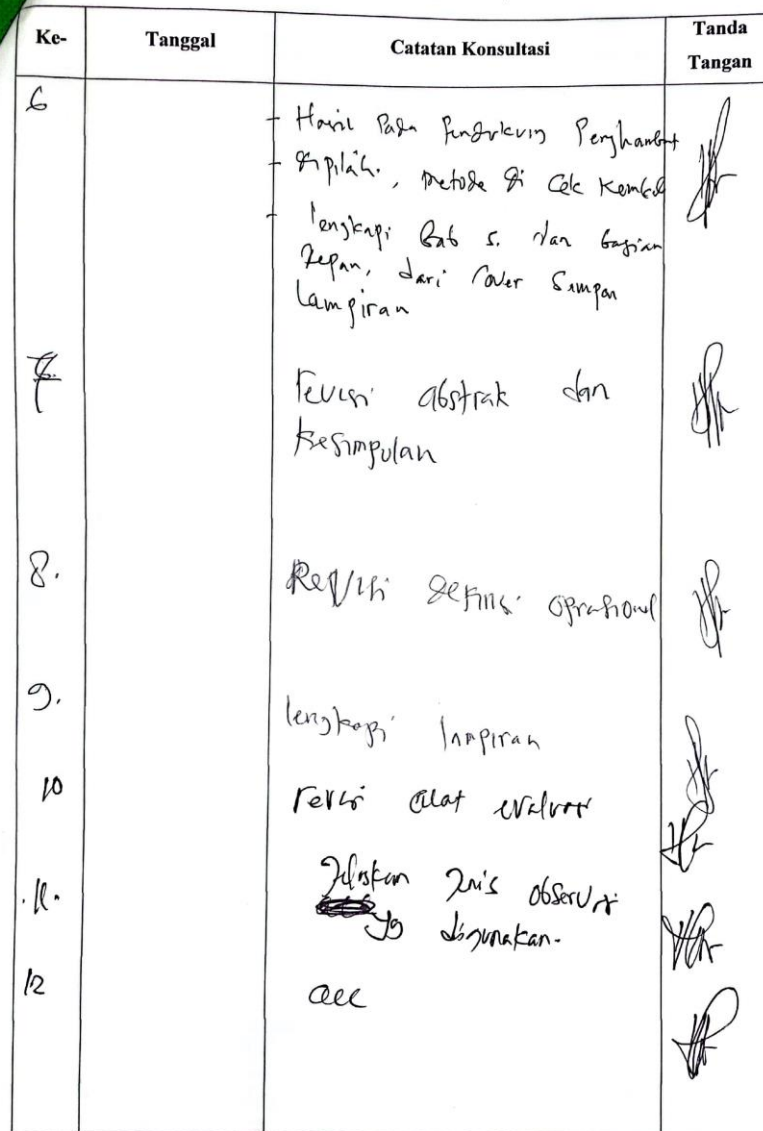 Ke- Tanggal Catatan Konsultasi Tanda Tangan
6 - Hasil Pada Pendukung Penghambat
- dipilah., metode di Cek Kembali
- lengkapi Bab 5. dan bagian
depan, dari Cover Sampan
Lampiran
7 revisi abstrak dan
kesimpulan
8. Revisi definisi oprasional
9. lengkapi lampiran
10 revisi alat evaluasi
11. Jelaskan Jenis observasi
yg digunakan.
12 acc